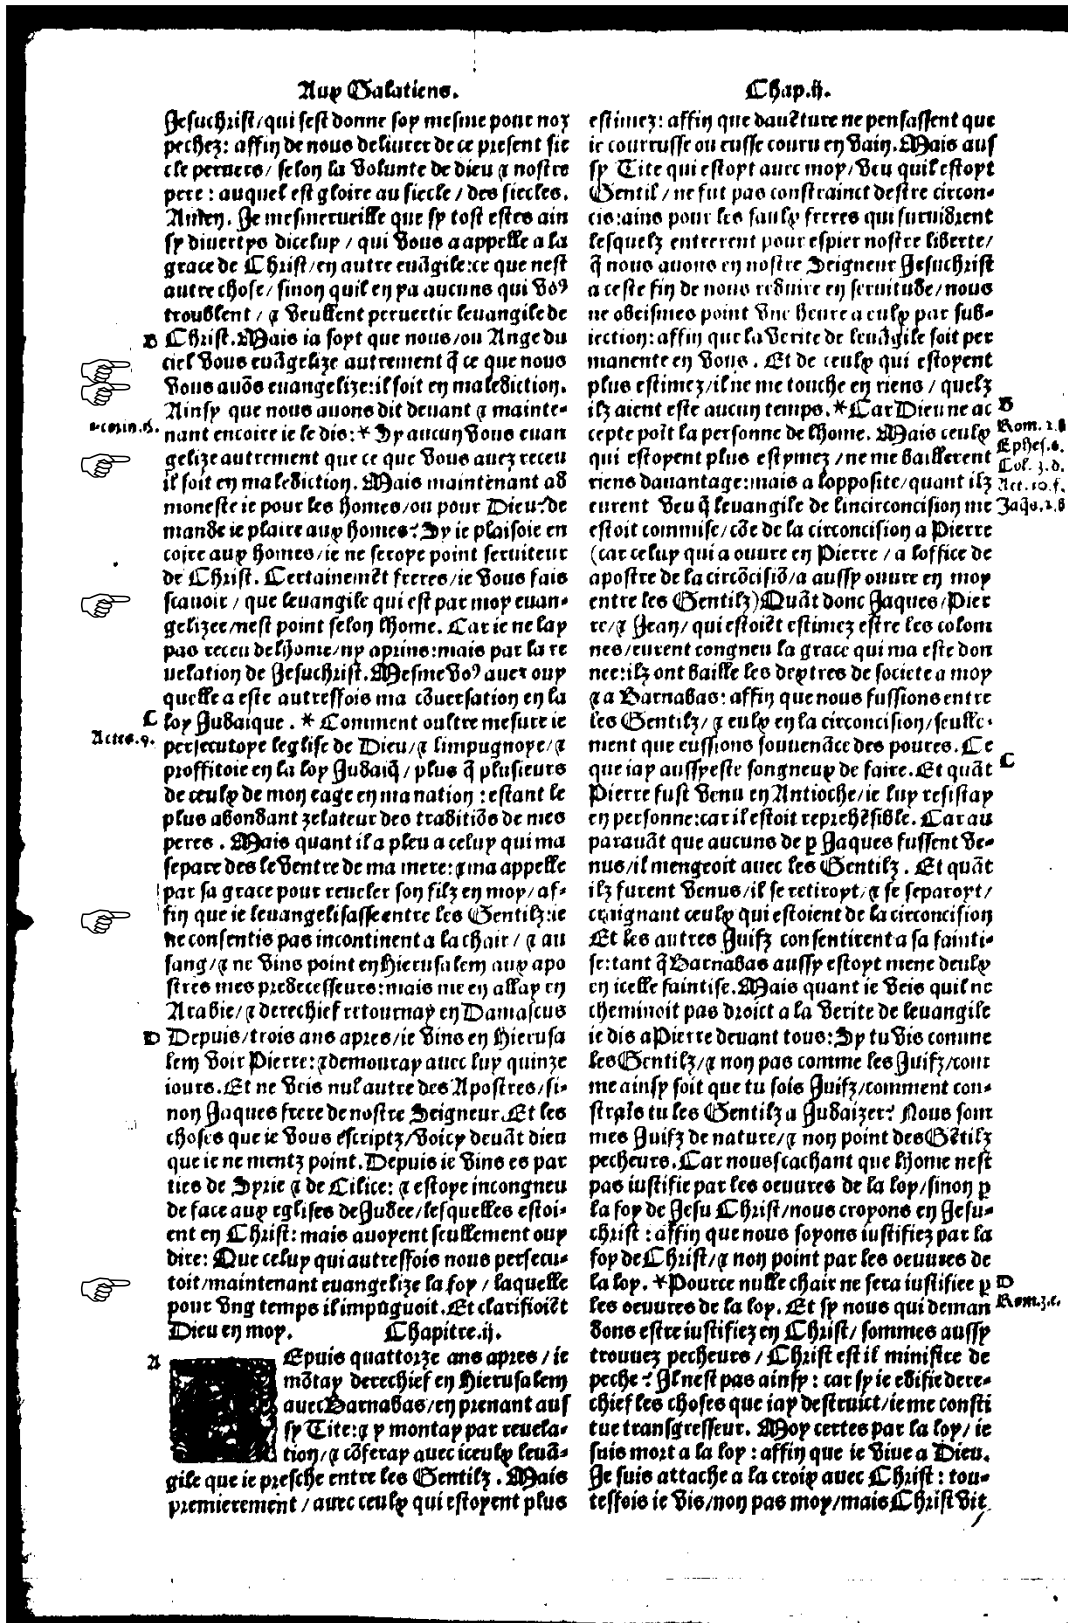 Aux Galatiens.
Jesuchrist/qui sest donne soy mesme pour noz
pechez: affin de nous delivrer de ce present sie
cle pervers/ selon la volunte de dieu & nostre
pere: auquel est gloire au siecle/ des siecles.
Amen. Je mesmerveille que sy tost estes ain
sy divertys dicelup/ qui vous a appelle a la
grace de Christ/en autre evãgile:ce que nest
autre chose/ sinon quil en ya aucuns qui voꝰ
troublent/ & veullent pervertir levangile de
B Christ. Mais ia soyt que nous/ou Ange du
ciel vous evãgelize autrement q̃ ce que nous
vous avõs evangelize:il soit en malediction.
Ainsy que nous avons dit devant & mainte-
nant encoire ie le dis:* Sy aucun vous evan
gelize autrement que ce que vous avez receu
il soit en malediction. Mais maintenant ad
moneste ie pour les homes/ou pour Dieu? de
mande ie plaire aux homes? Sy ie plaisoie en
coire aux homes/ie ne seroye point serviteur
de Christ. Certainemẽt freres/ie vous fais
scavoir/ que levangile qui est par moy evan-
gelizee/nest point selon lhome. Car ie ne lay
pas receu de lhome/ny aprins:mais par la re
velation de Jesuchrist. Mesme voꝰ avez ouy
quelle a este autresfois ma cõversation en la
C loy Judaique. * Comment oultre mesure ie
Actes.9.
persecutoye leglise de Dieu/& limpugnoye/&
proffitoie en la loy Judaiq̃/ plus q̃ plusieurs
de ceulx de mon eage en ma nation: estant le
plus abondant zelateur des traditiõs de mes
peres. Mais quant il a pleu a celuy qui ma
separe des le ventre de ma mere: & ma appelle
par sa grace pour reveler son filz en moy/ af-
fin que ie levangelisasse entre les Gentilz:ie
ne consentis pas incontinent a la chair/ & au
sang/& ne vins point en Hierusalem aux apo
stres mes predecesseurs:mais me en allay en
Arabie/& derechief retournay en Damascus
D Depuis/trois ans apres/ie vins en Hierusa
lem voir Pierre: & demouray avec luy quinze
iours. Et ne veis nul autre des Apostres/si-
non Jaques frere de nostre Seigneur. Et les
choses que ie vous escriptz/voicy devãt dieu
que ie ne mentz point. Depuis ie vins es par
ties de Syrie & de Cilice: & estoye incongneu
de face aux eglises de Judee/lesquelles estoi-
ent en Christ: mais avoyent seullement ouy
dire: Que celuy qui autresfois nous persecu-
toit/maintenant evangelize la foy/ laquelle
pour ung temps il impugnoit. Et clarifioiẽt
Dieu en moy. Chapitre.ij.
A Epuis quattorze ans apres/ ie
mõtay derechief en Hierusalem
avec Barnabas/en prenant aus
sy Tite: & y montay par revela-
tion/& cõferay avec iceulx levã-
gile que ie presche entre les Gentilz. Mais
premierement/ avec ceulx qui estoyent plus
Chap.ij.
estimez: affin que davẽture ne pensassent que
ie courrusse ou eusse couru en vain. Mais aus
sy Tite qui estoyt avec moy/ veu quil estoyt
Gentil/ ne fut pas constrainct destre circon-
cis:ains pour les faulx freres qui survidrent
lesquelz entrerent pour espier nostre liberte/
q̃ nous avons en nostre Seigneur Jesuchrist
a ceste fin de nous reduire en servitude/nous
ne obeismes point vne heure a culx par sub-
iection: affin que la verite de levãgile soit per
manente en vous. Et de ceulx qui estoyent
plus estimez/il ne me touche en riens/ quelz
ilz aient este aucun temps. * Car Dieu ne ac B
cepte poĩt la personne de lhome. Mais ceulx Rom. 2.b
qui estoyent plus estymez/ne me baillerent Ephes.6.
riens davantage:mais a lopposite/quant ilz Col. 3.d.
eurent veu q̃ levangile de lincirconcision me Act. 10.f. Jaq̃s. 2.b
estoit commise/cõe de la circoncision a Pierre
(car celuy qui a ouvre en Pierre/ a loffice de
apostre de la circõcisiõ/a aussy ouvre en moy
entre les Gentilz) Quãt donc Jaques/Pier
re/& Jean/ qui estoiẽt estimez estre les colom
nes/eurent congneu la grace qui ma este don
nee:ilz ont baille les dextres de societe a moy
& a Barnabas: affin que nous fussions entre
les Gentilz/& eulx en la circoncision/seulle-
ment que eussions souvenãce des povres. Ce
que iay aussy este songneux de faire. Et quãt C
Pierre fust venu en Antioche/ie luy resistay
en personne:car il estoit reprehẽsible. Car au
paravãt que aucuns de p̱ Jaques fussent ve-
nus/il mengeoit avec les Gentilz. Et quãt
ilz furent venus/il se retiroyt/& se separoyt/
craignant ceulx qui estoient de la circoncision
Et les autres Juifz consentirent a sa fainti-
se:tant q̃ Barnabas aussy estoyt mene deulx
en icelle faintise. Mais quant ie veis quil ne
cheminoit pas droict a la verite de levangile
ie dis a Pierre devant tous: Sy tu vis comme
les Gentilz/& non pas comme les Juifz/com
me ainsy soit que tu sois Juifz/comment con-
strais tu les Gentilz a Judaizer? Nous som
mes Juifz de nature/& non point des Gẽtilz
pecheurs. Car nous scachant que lhome nest
pas iustifie par les oeuvres de la loy/sinon p̱
la foy de Jesu Christ/nous croyons en Jesu-
christ: affin que nous soyons iustifiez par la
foy de Christ/& non point par les oeuvres de
la loy. *Pource nulle chair ne sera iustifiee p̱ D
les oeuvres de la loy. Et sy nous qui deman Rom.3.c.
dons estre iustifiez en Christ/ sommes aussy
trouvez pecheurs/ Christ est il ministre de
peche? Il nest pas ainsy: car sy ie edifie dere-
chief les choses que iay destruict/ie me consti
tue transgresseur. Moy certes par la loy/ ie
suis mort a la loy: affin que ie vive a Dieu.
Je suis attache a la croix avec Christ: tou-
tesfois ie vis/non pas moy/mais Christ vit